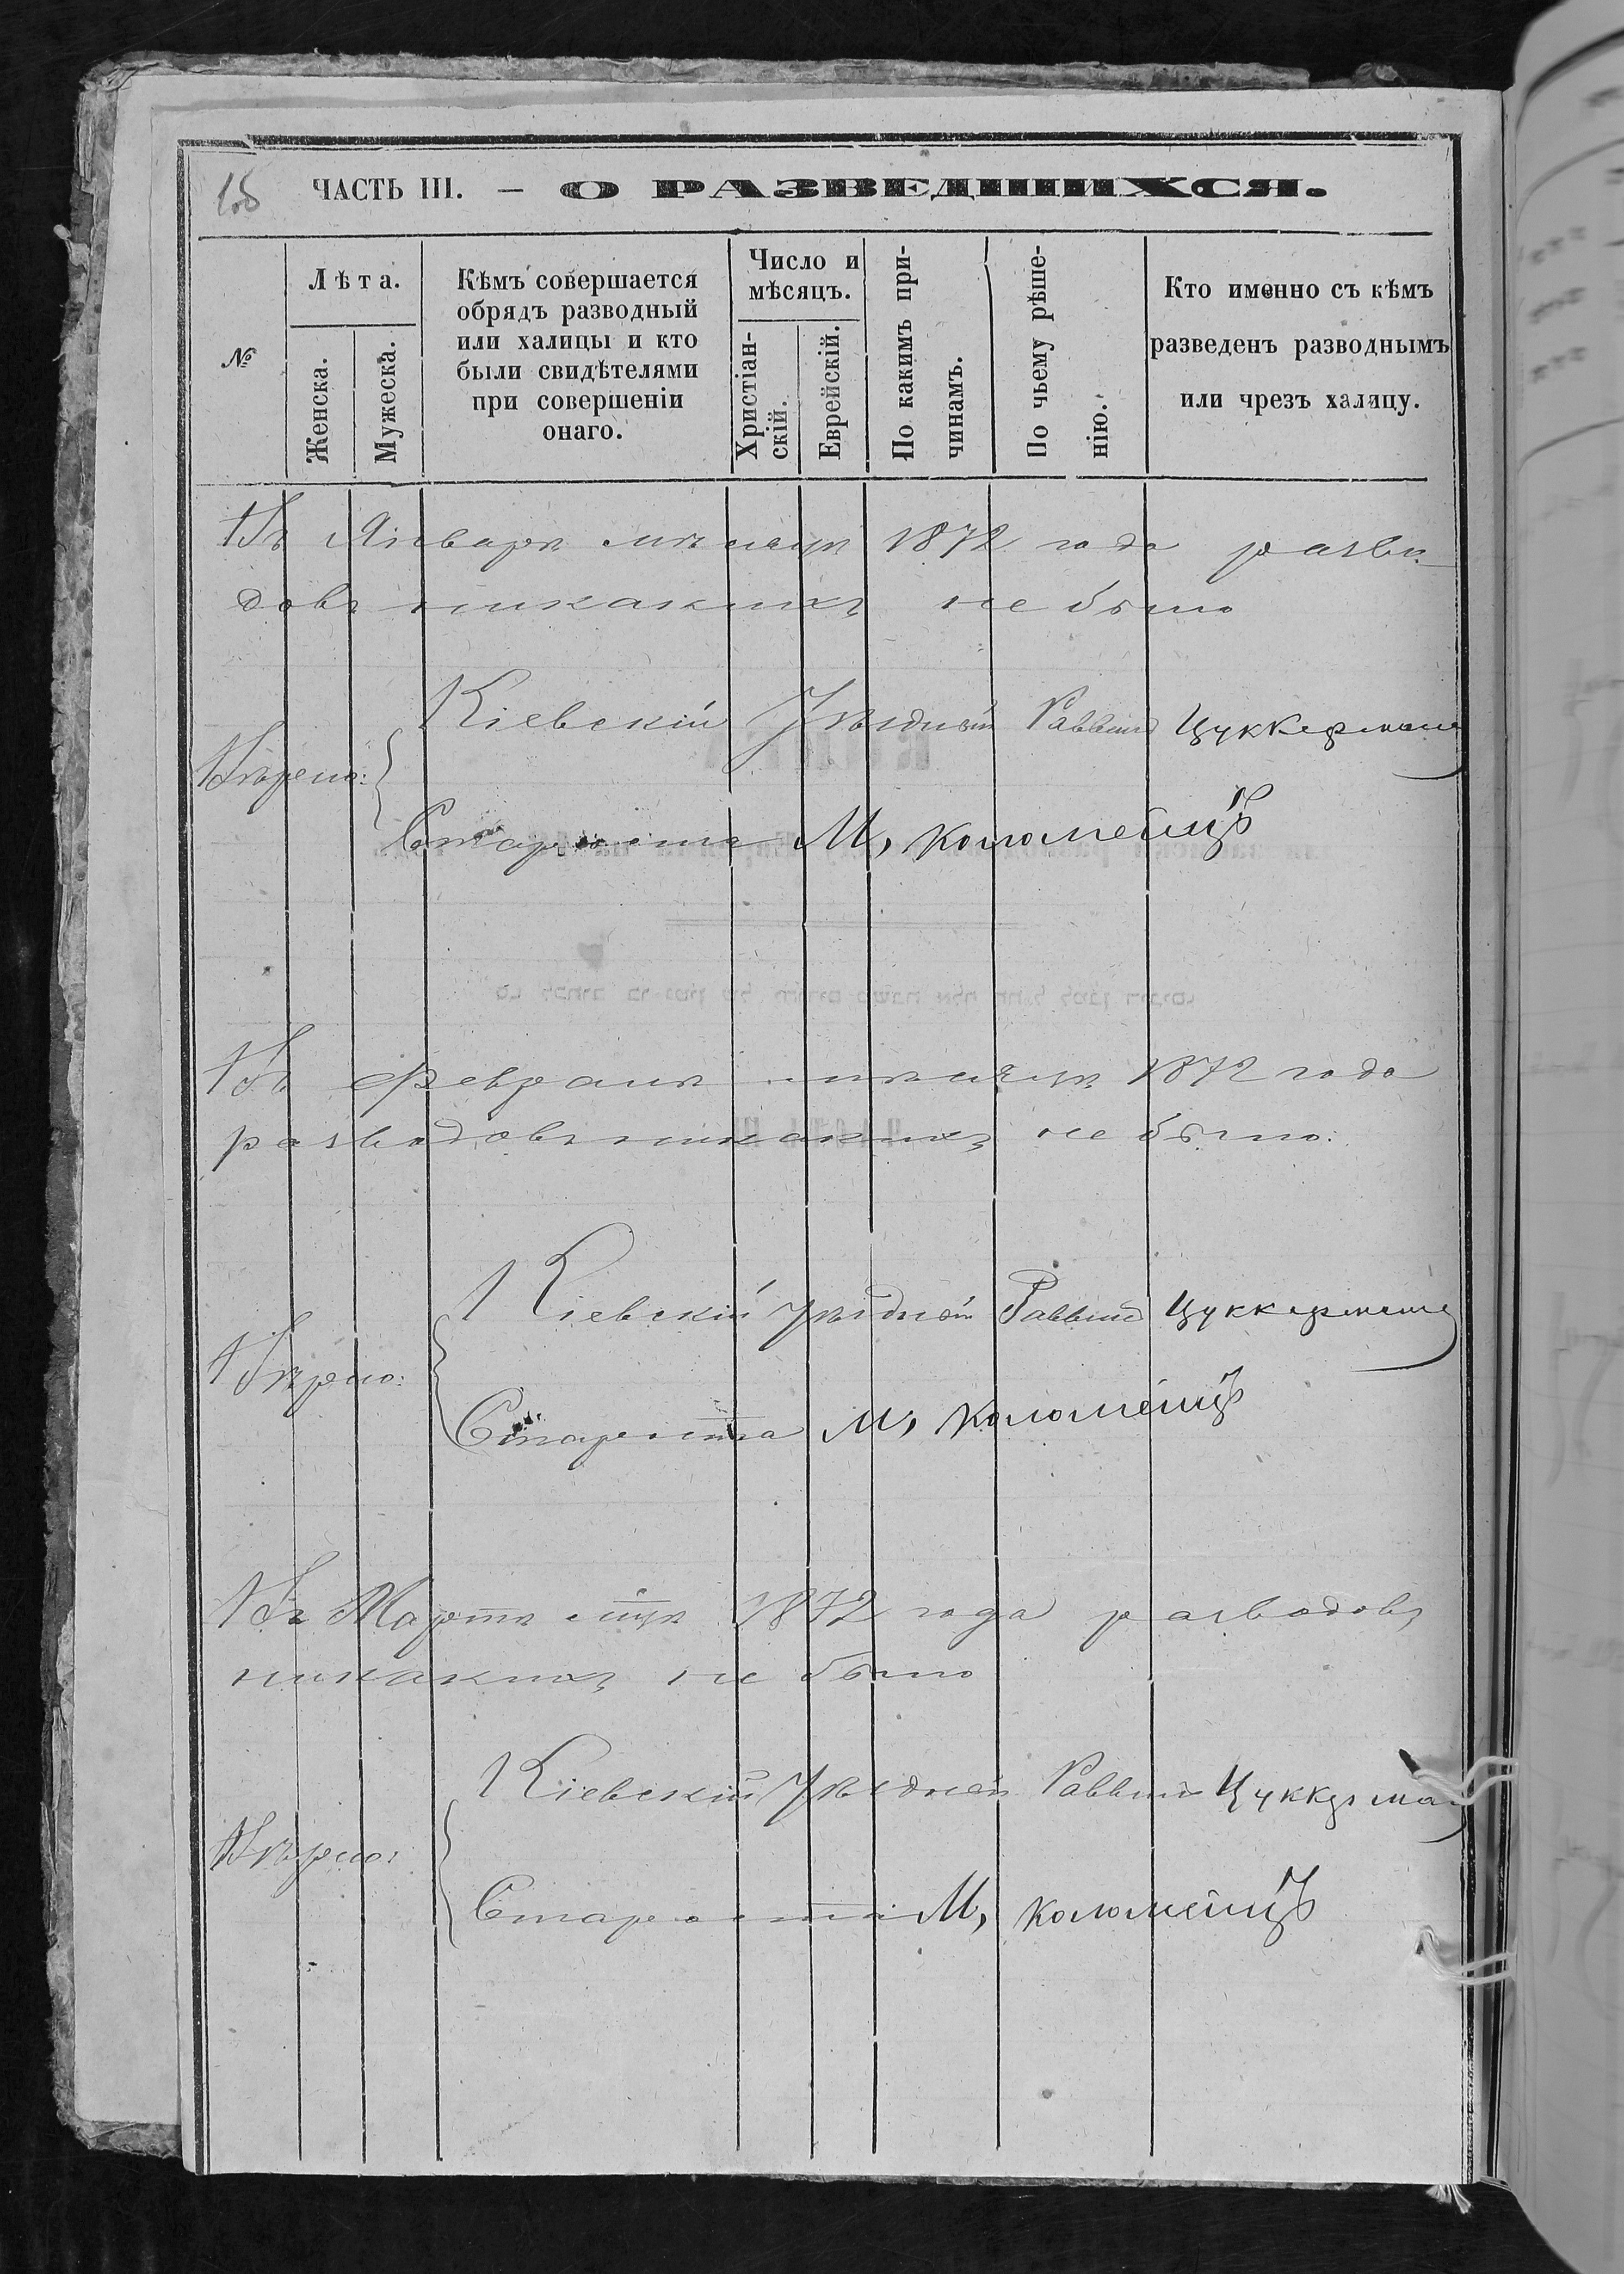 ЧАСТЬ III. — О РАЗВЕДШИХСЯ.
№
Лѣта.
Женска.
Мужеска.
Кѣмъ совершается
обрядъ разводный
или халицы и кто
были свидѣтелями
при совершеніи
онаго.
Число и
мѣсяцъ.
Христіан-
скій.
Еврейскій.
По какимъ при-
чинамъ.
По чьему рѣше-
нію.
Кто именно съ кѣмъ
разведенъ разводнымъ
или чрезъ халицу.
Въ Январѣ мѣсяцѣ 1872 года разво-
довъ никакихъ не было
Кіевскій Уѣздный Раввинъ Цуккерманъ
Вѣрно:
Староста М. Коломеецъ
Въ Февралѣ мѣсяцѣ 1872 года
разводовъ никакихъ не было:
Кіевскій Уѣздный Раввинъ Цуккерманъ
Вѣрно:
Староста М. Коломеецъ
Въ Мартѣ мцѣ 1872 года разводовъ
никакихъ не было
Кіевскій Уѣздный Раввинъ Цуккерман
Вѣрно:
Староста М. Коломеецъ